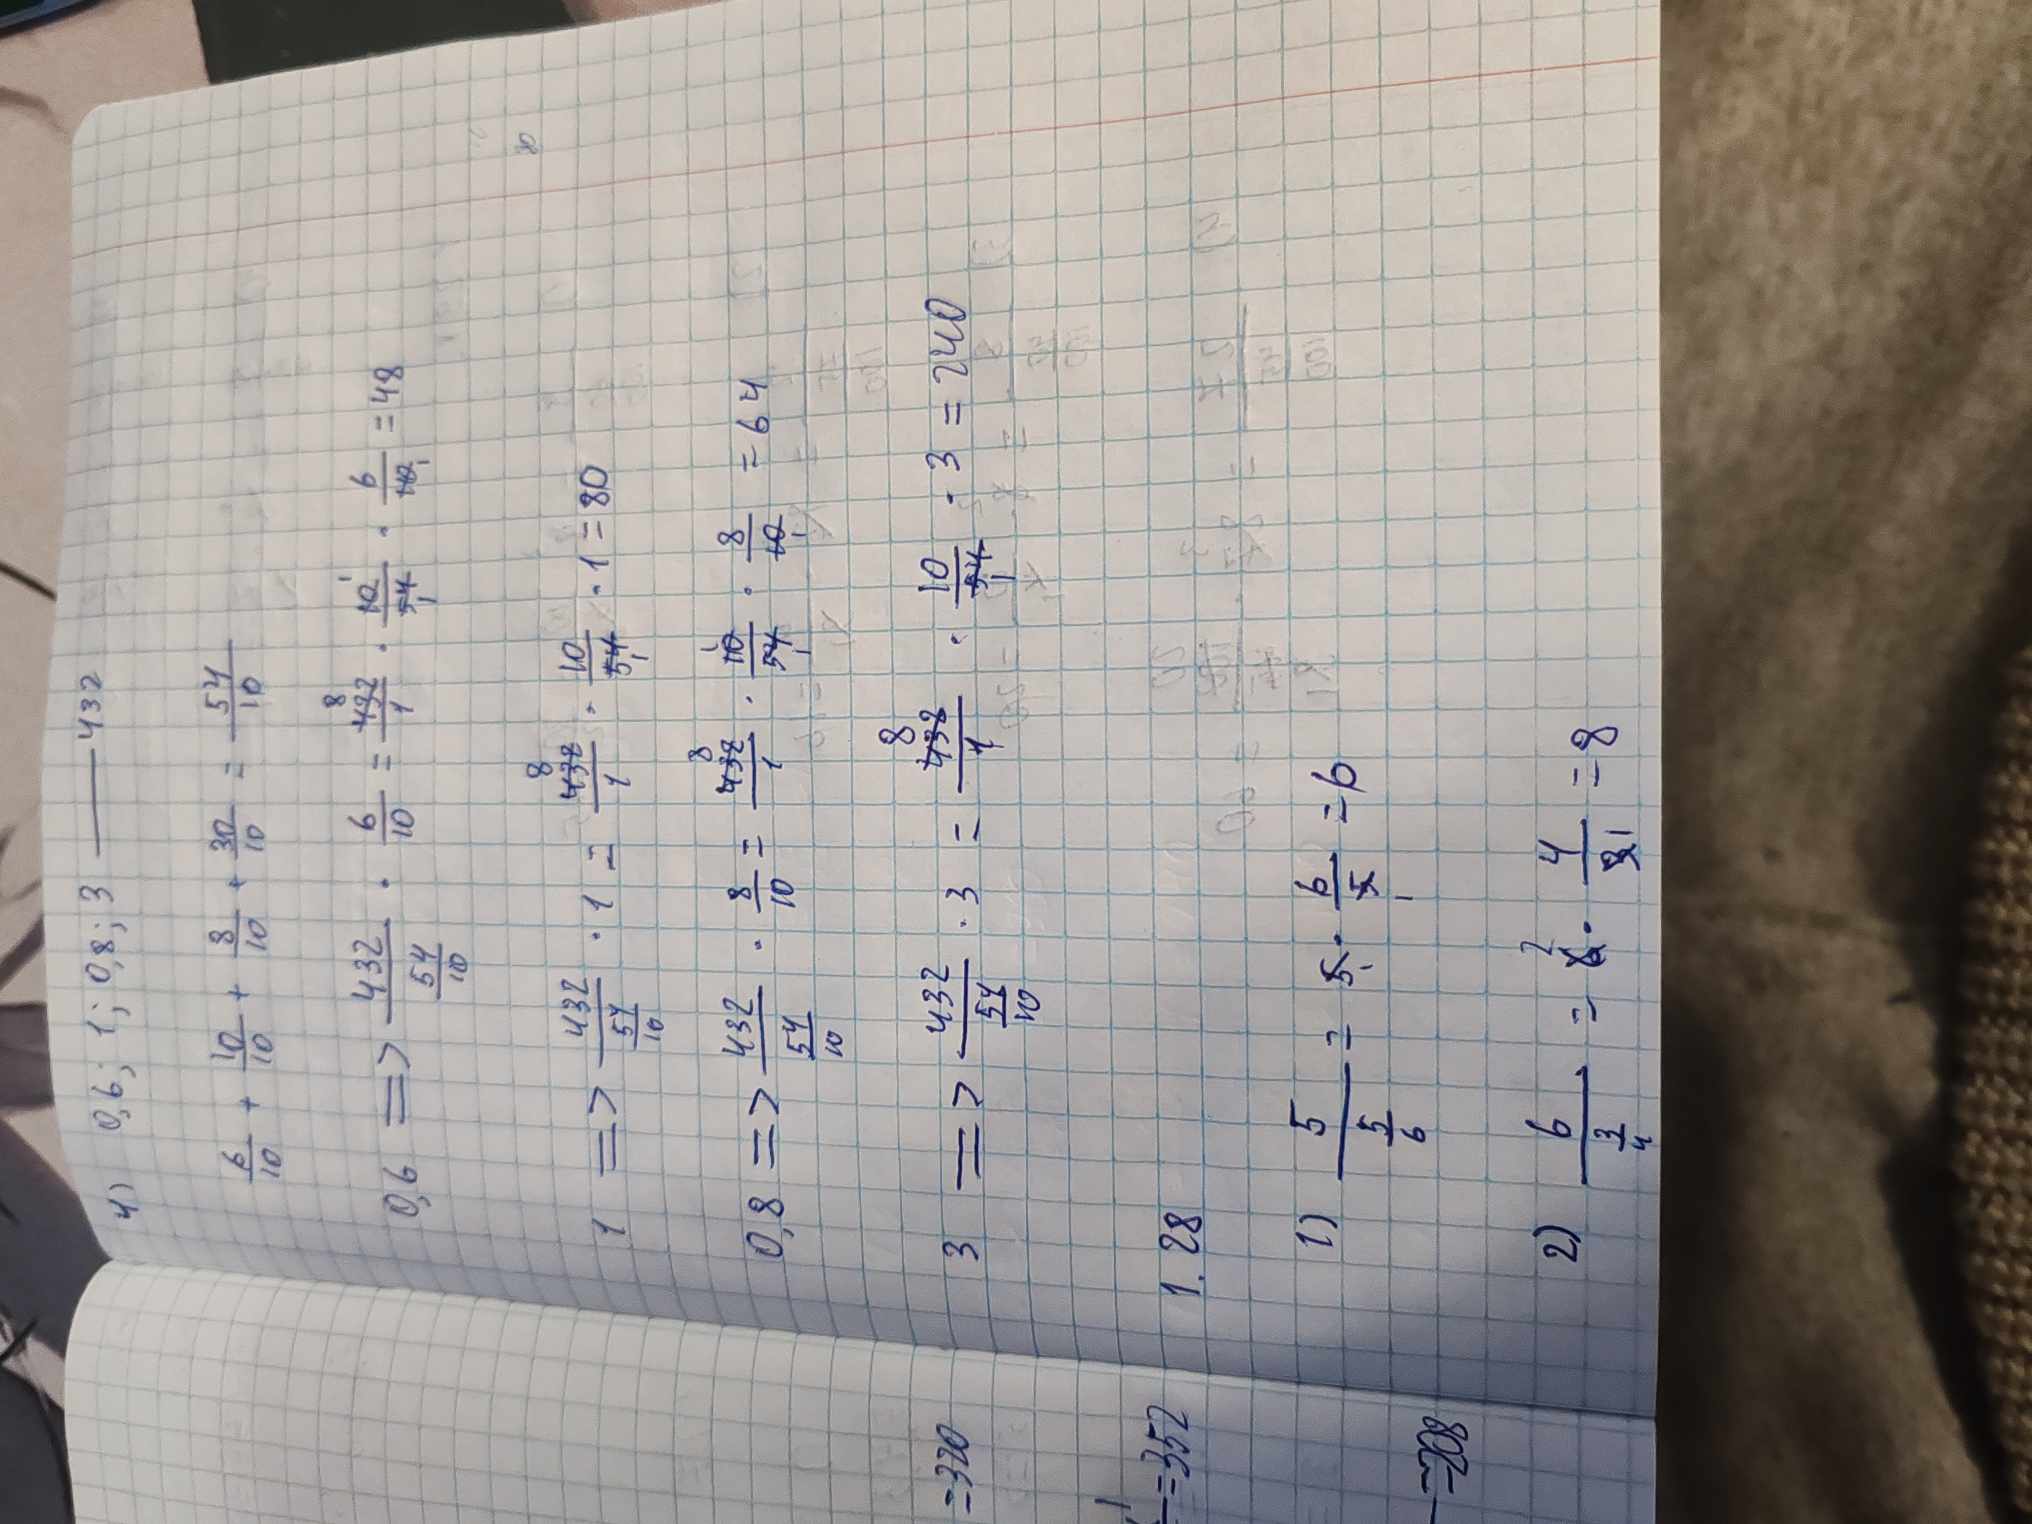 4) 0,6; 1; 0,8; 3 — 432
6/10 + 10/10 + 8/10 + 30/10 = 54/10
0,6 => 432/(54/10) · 6/10 = 432/1 · 10/54 · 6/10 = 48
1 => 432/(54/10) · 1 = 432/1 · 10/54 · 1 = 80
0,8 => 432/(54/10) · 8/10 = 432/1 · 10/54 · 8/10 = 64
3 => 432/(54/10) · 3 = 432/1 · 10/54 · 3 = 240
1.28
1) 5/(5/6) = 5 · 6/5 = 6
2) 6/(3/4) = 6 · 4/3 = 8
=320
=352
=208